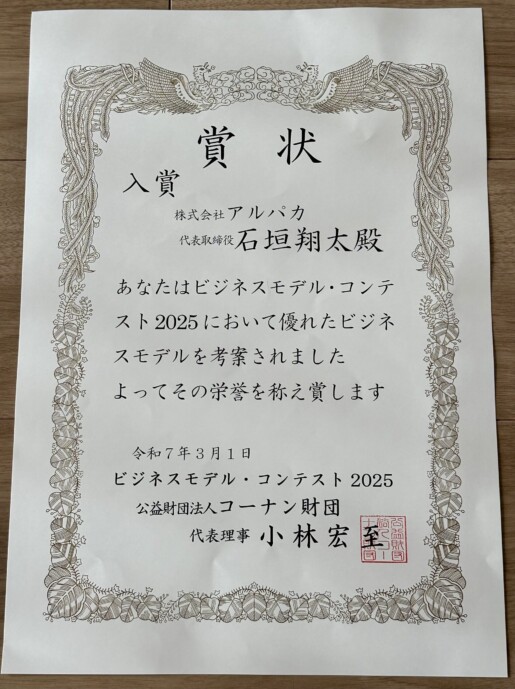 賞 状
入賞
株式会社アルパカ
代表取締役 石垣翔太殿
あなたはビジネスモデル・コンテ
スト2025において優れたビジネ
スモデルを考案されました
よってその栄誉を称え賞します
令和7年3月1日
ビジネスモデル・コンテスト2025
公益財団法人コーナン財団
代表理事 小林宏至